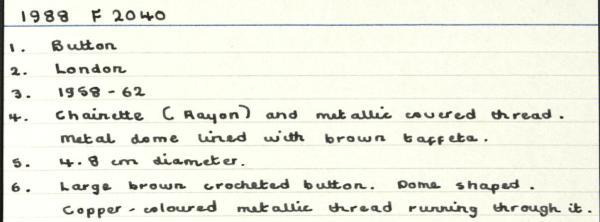 1988 F 2040
1. Button
2. London
3. 1958-62
4. Chainette (Rayon) and metallic covered thread.
Metal dome lined with brown taffeta.
5. 4.8 cm diameter.
6. Large brown crocheted button. Dome shaped.
Copper-coloured metallic thread running through it.